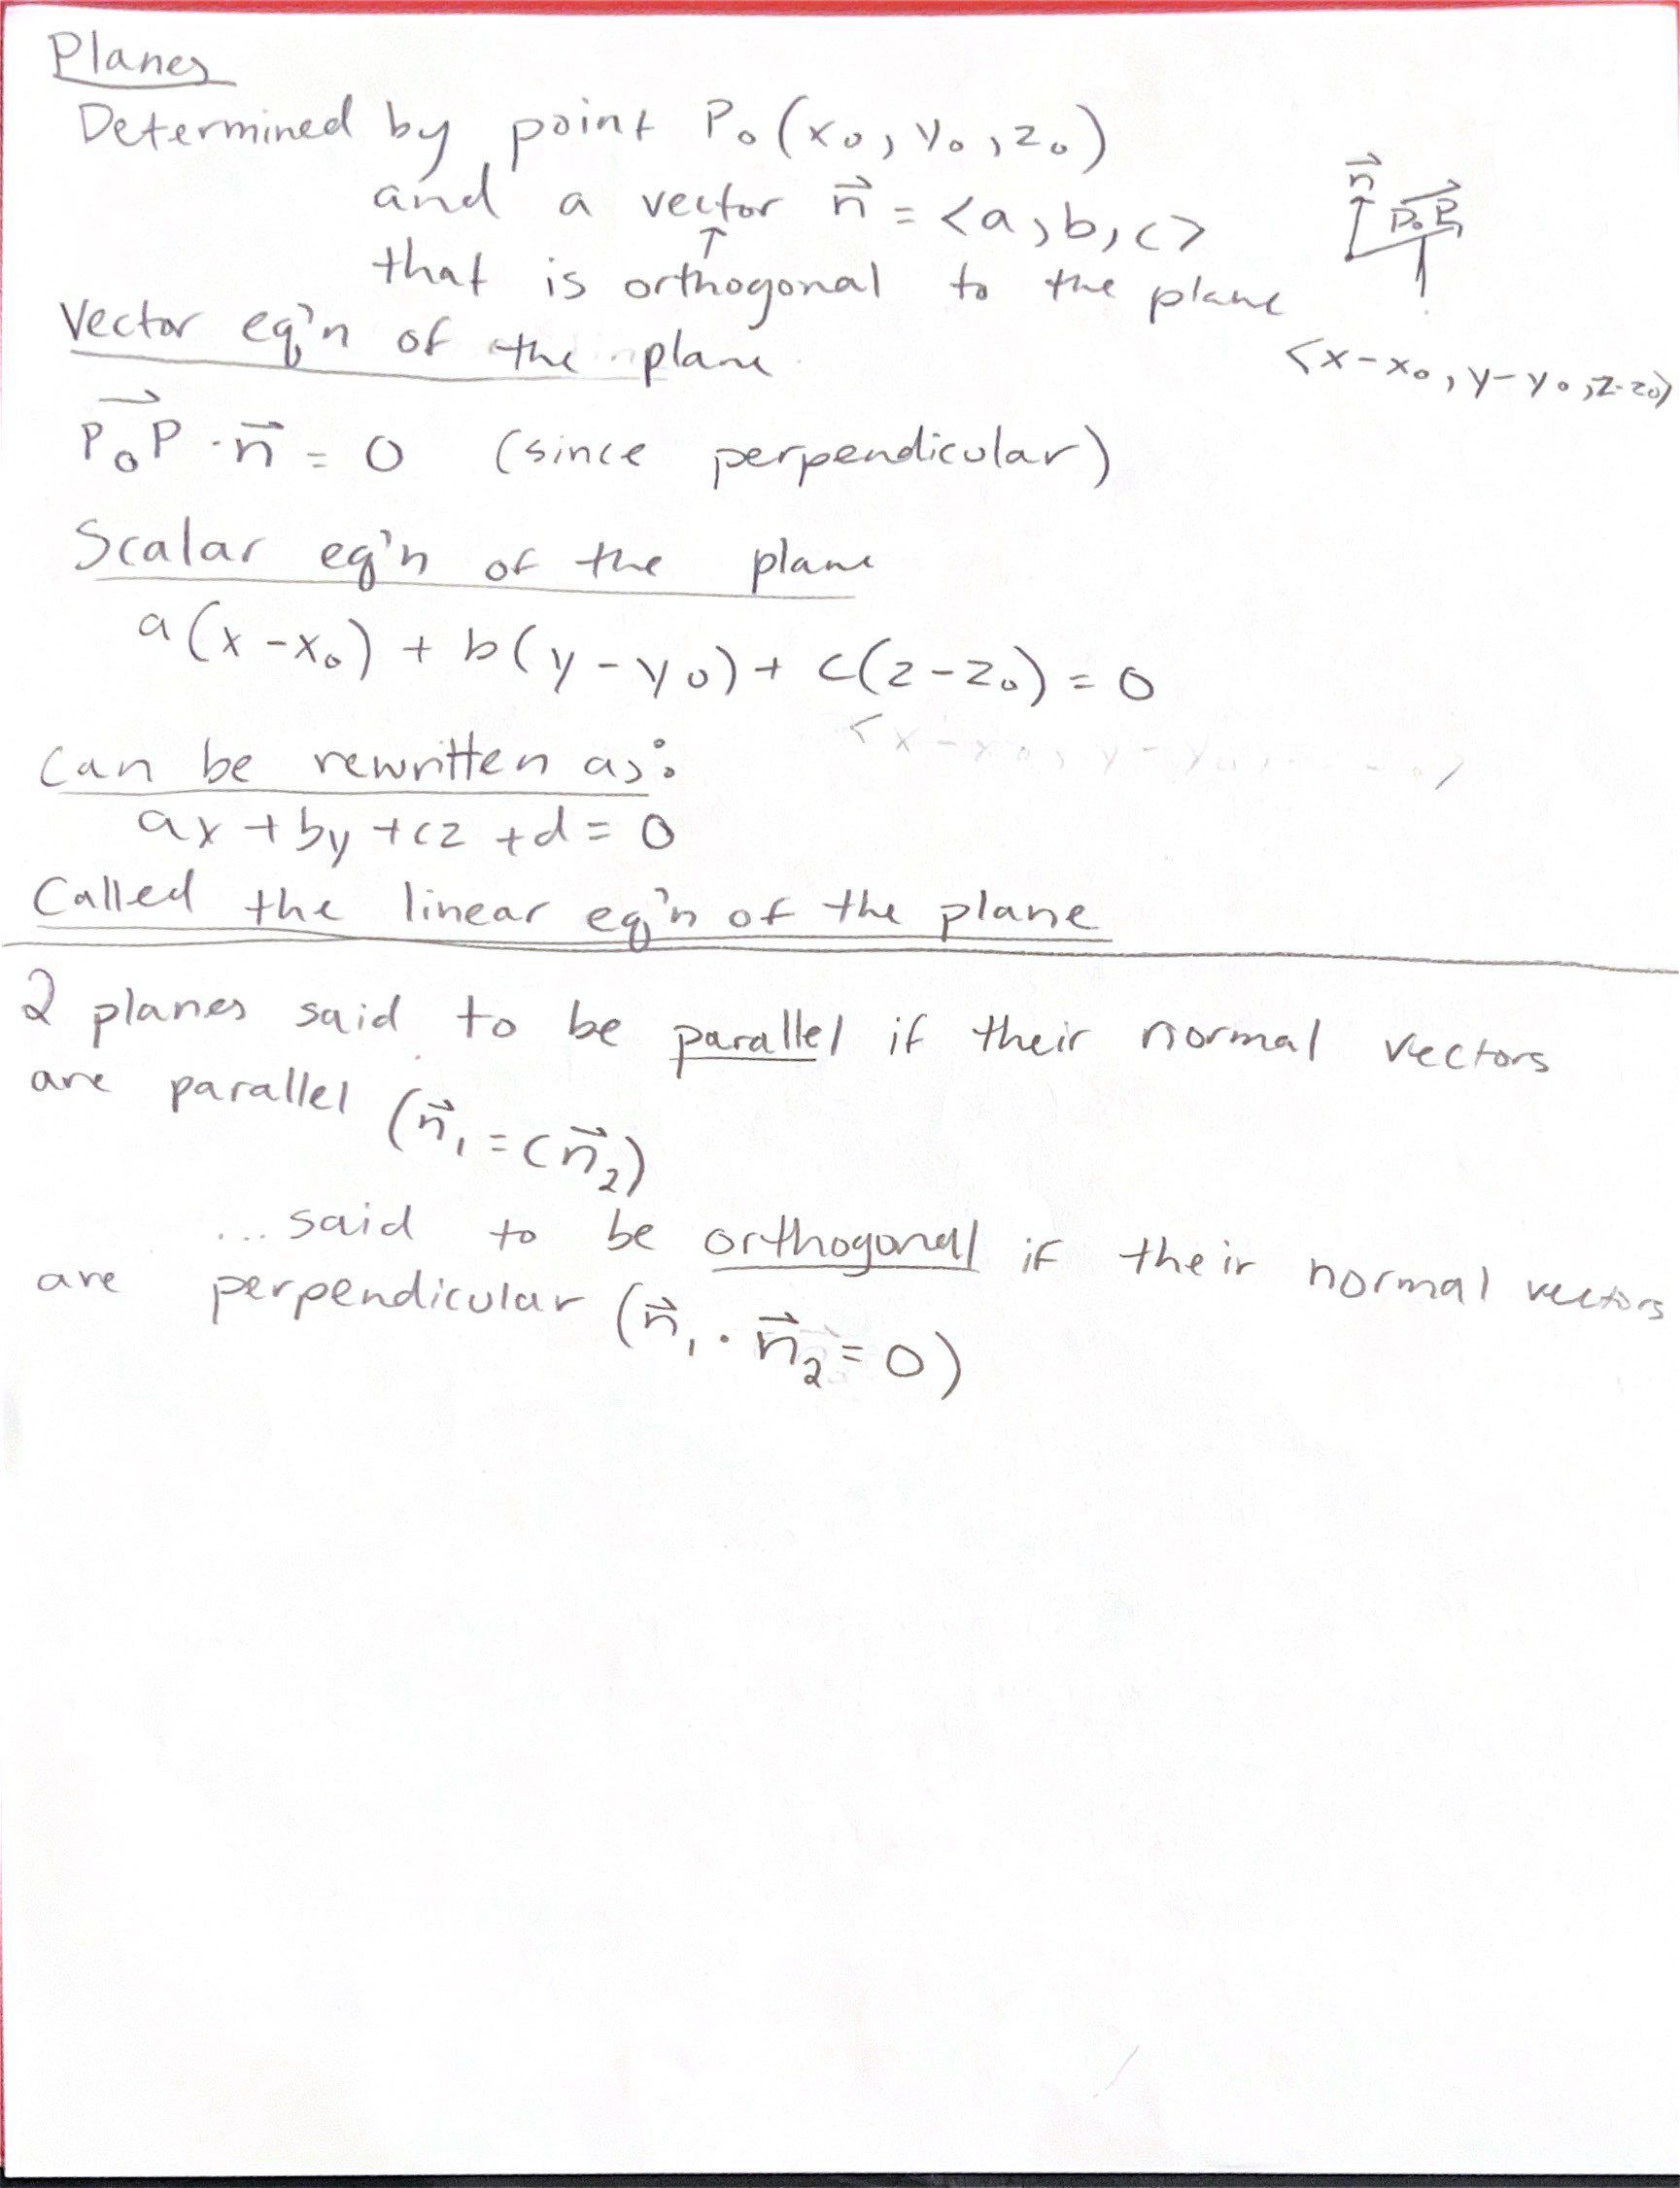 Planes
Determined by point P₀(x₀, y₀, z₀)
and a vector n⃗ = <a, b, c>
↑
that is orthogonal to the plane
n⃗
P₀P⃗
<x-x₀, y-y₀, z-z₀>
Vector eq'n of the plane
P₀P⃗ · n⃗ = 0 (since perpendicular)
Scalar eq'n of the plane
a(x-x₀) + b(y-y₀) + c(z-z₀) = 0
can be rewritten as:
ax + by + cz + d = 0
Called the linear eq'n of the plane
2 planes said to be parallel if their normal vectors
are parallel (n⃗₁ = c n⃗₂)
...said to be orthogonal if their normal vectors
are perpendicular (n⃗₁ · n⃗₂ = 0)